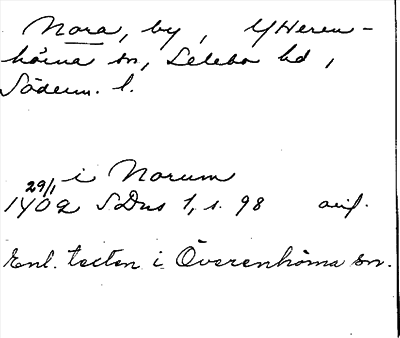 Nora, by, Ytteren-
hörna sn, Selebo hd,
Söderm. l.
i Norum
29/1
1402 SDns 1, s. 98 avs.
Enl. texten i Överenhörna sn.